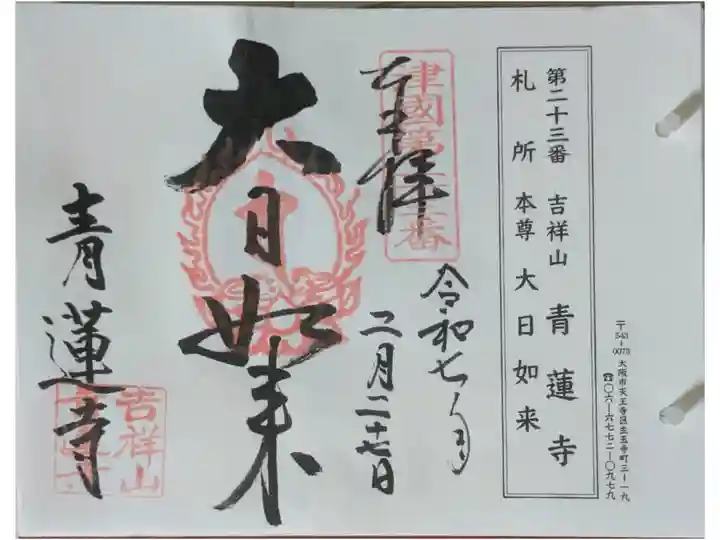 第二十三番 吉祥山 青蓮寺
札所 本尊 大日如来
〒543-0073 大阪市天王寺区生玉寺町三-一九
☎〇六-六七七二-〇九七九
津國第二十三番
奉拝
令和七年
二月二十七日
大日如来
青蓮寺
吉祥山